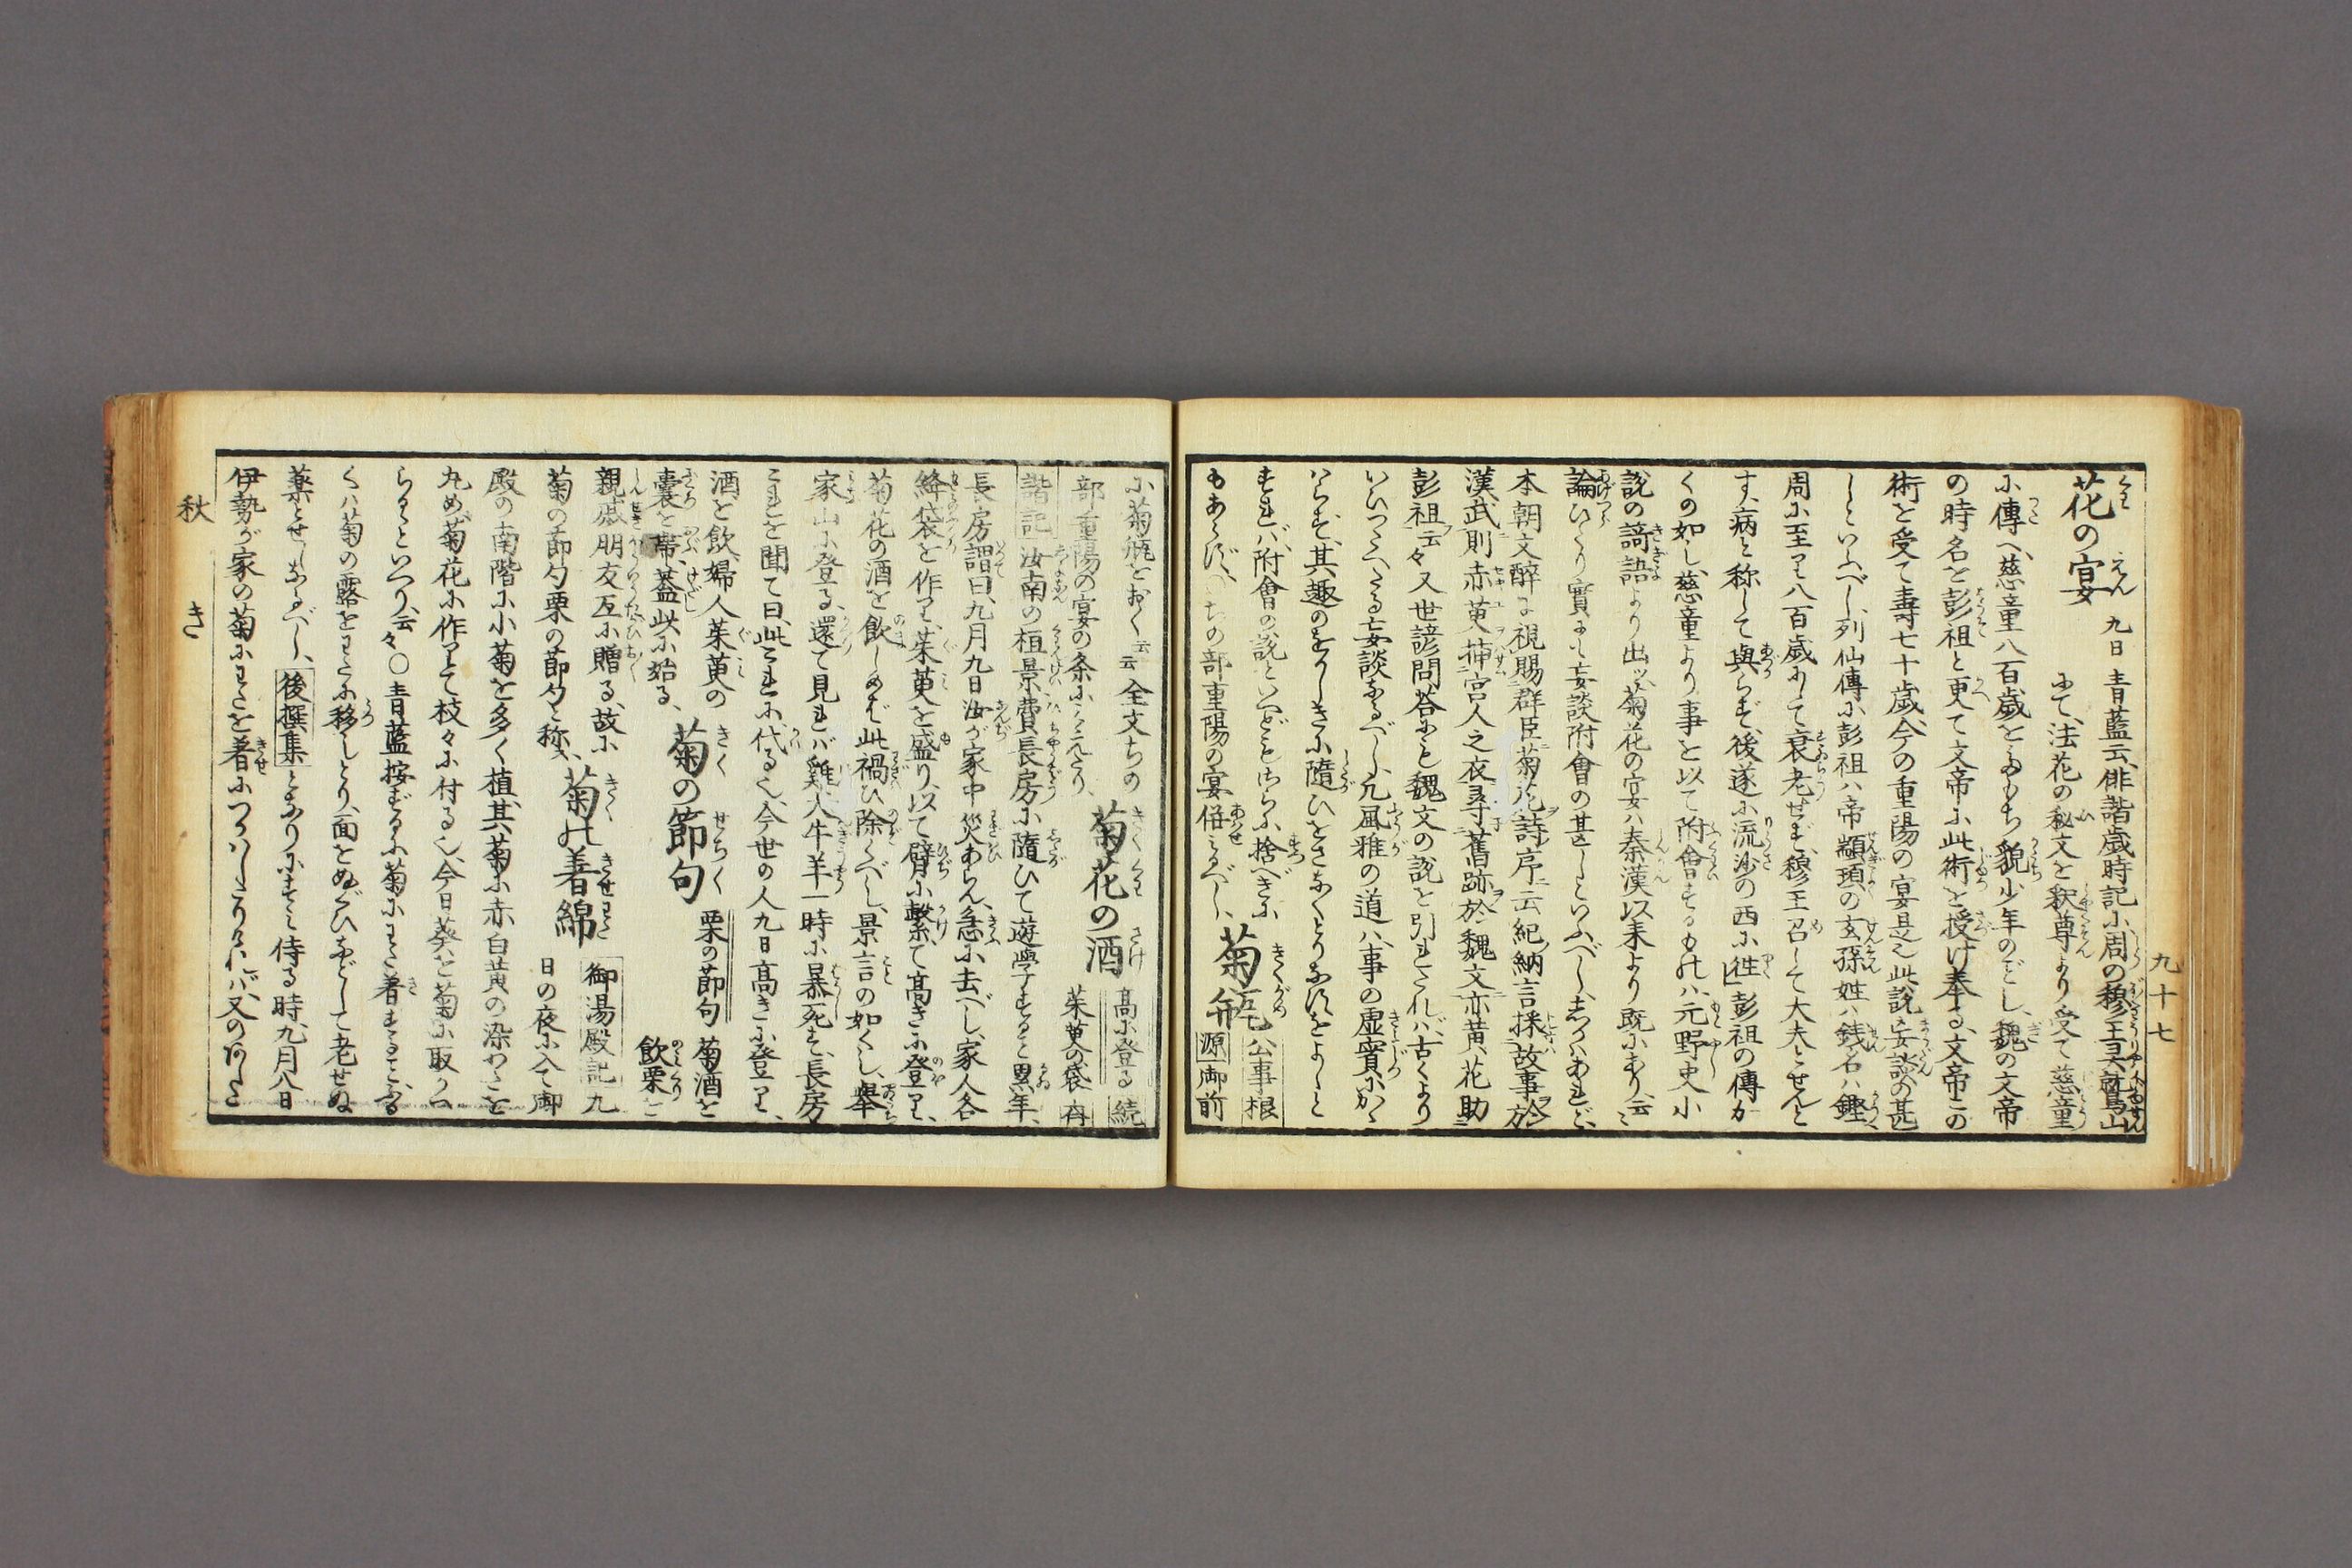 花の宴 九日 青藍云、俳諧歳時記に、周の穆王、霊鷲山
にて、法花の秘文を釈尊より受て慈童
に傳へ、慈童八百歳をふるも、貌少年のごとし、魏の文帝
の時名を彭祖と更て文帝に此術を授け奉る、文帝この
術を受て壽七十歳、今の重陽の宴是也、此説妄談の甚
しといふべし、列仙傳に彭祖ハ帝顓頊の玄孫姓ハ銭名ハ鏗
周に至り八百歳にして衰老せず、穆王召して大夫とせんと
す、病と称して與らず、後遂に流沙の西に徃」彭祖の傳か
くの如し、慈童より事を以て附會するものハ、元野史小
説の 語より出ッ、菊花の宴ハ秦漢以来より既にあり、云〻
論ひたり實に 妄談附會の甚しといふべし、しかハあれど、
本朝文醉 視賜群臣菊花詩序云紀納言採故事於
漢武則赤萸挿宮人之衣尋舊跡於魏文亦黄花助
彭祖 云々 又世諺問答にも魏文の説を引たれバ、古くより
いひつたへたる妄談なるべし、凡風雅の道ハ、事の虚實にかゝ
はらず、其趣のをかしきに隨ひをさなくとりなすをよしと
すれバ、附會の説といへどもさらに捨べきに
もあらず、 ちの部重陽の宴併 べし、
菊瓶 公事根
源 御前
九十七
に菊瓶をおく 云云 全文ちの
部重陽の宴の条に見えたり、
菊花の酒 高に登る
茱萸の袋 続
斉
諧記 汝南の桓景費長房に隨ひて遊學すること累年、
長房謂曰、九月九日汝が家中災あらん、急に去べし、家人各
絳袋を作り、茱萸を盛り、以て臂に繋て、高きに登り、
菊花の酒を飲しめば此禍ひ除くべし、景言の如くし、擧
家山に登る、還て見れバ雞犬牛羊一時に暴死す、長房
これを聞て曰、此これに代る也、今世の人九日高きに登り、
酒を飲、婦人茱萸の
嚢を帯、蓋此に始る、
菊の節句 栗の節句
菊酒を
飲栗を
親戚朋友互に贈る、故に
菊の節句栗の節句と称、
菊の着綿 御湯殿記 九
日の夜に入て御
殿の南階に小菊を多く植、其菊に赤白黄の染わたを
丸め、菊花に作りて枝々に付る也、今日葵を菊に取か
らるゝといへり、云々○青藍按ずるに菊にわた着することふる
くハ菊の露をわたに移しとり、面をぬぐひなどして老せぬ
薬とせしなるべし、後撰集 となりにすミ侍る時、九月八日
伊勢が家の菊にわたを着につかハしたりけれバ、又のあした
秋
き